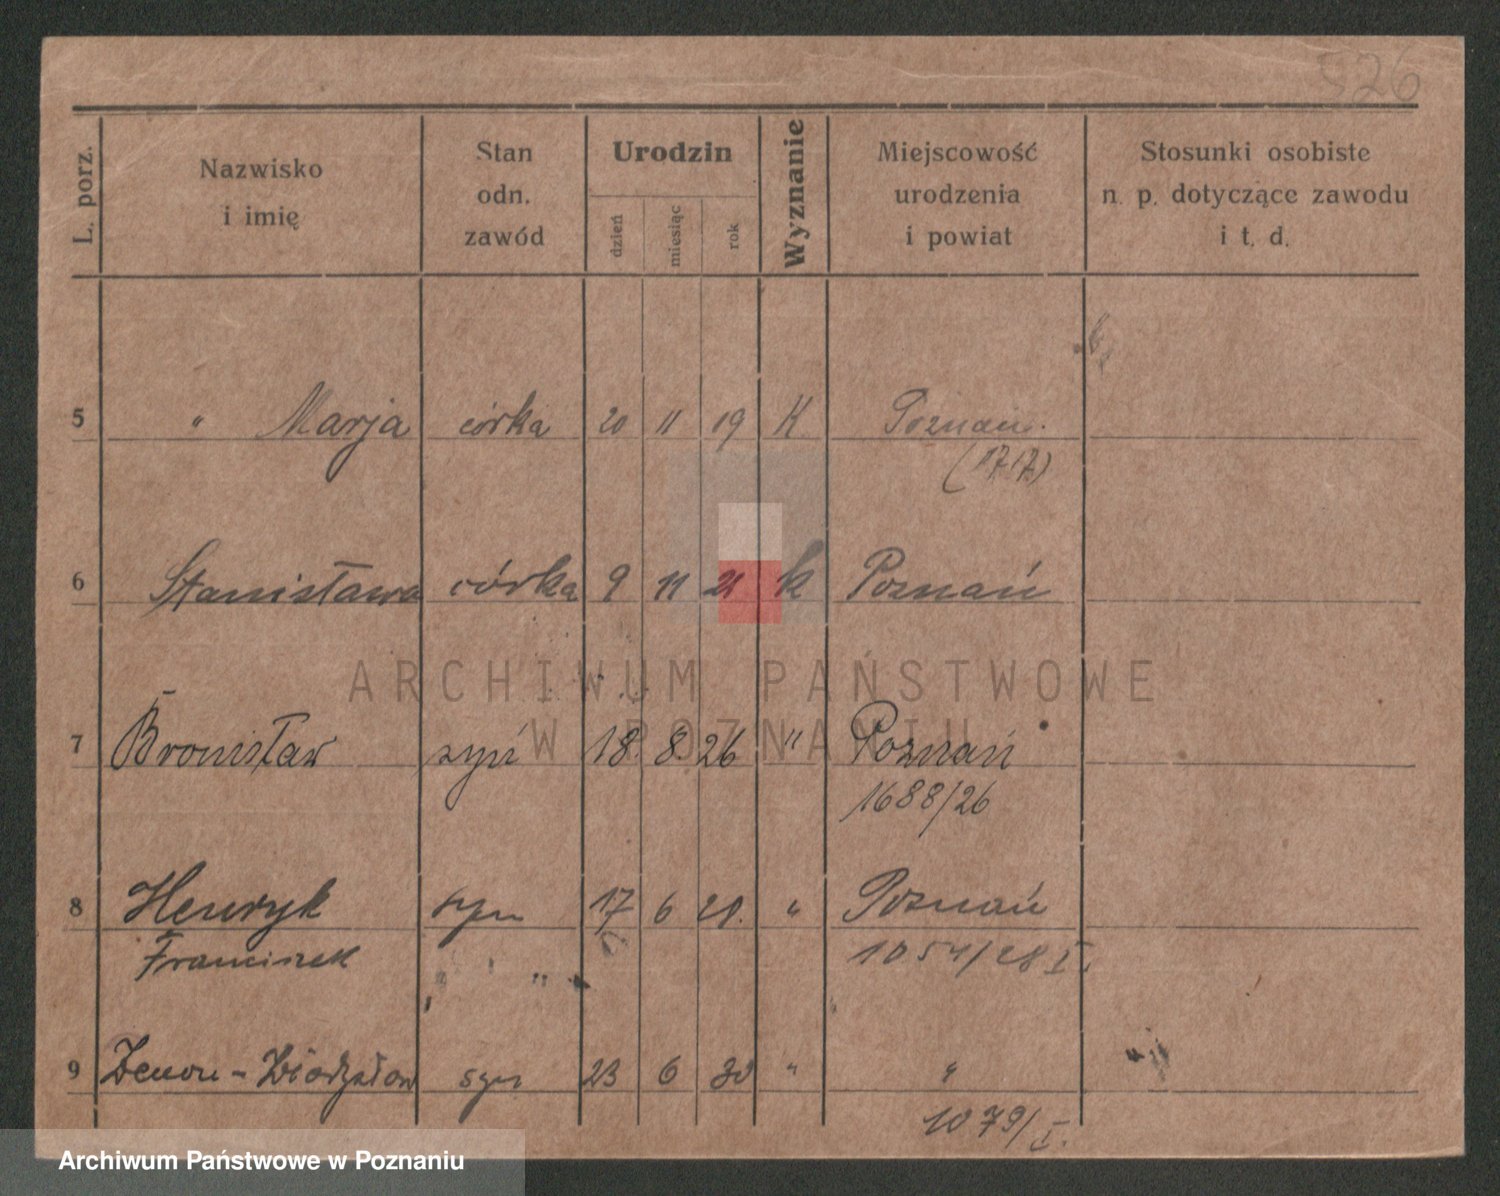 926
L. porz.
Nazwisko
i imię
Stan
odn.
zawód
Urodzin
dzień
miesiąc
rok
Wyznanie
Miejscowość
urodzenia
i powiat
Stosunki osobiste
n. p. dotyczące zawodu
i t. d.
5 " Marja córka 20 11 19 K. Poznań.
(1717)
6 Stanisława córka 9 11 21 k Poznań
7 Bronisław syn 18. 8. 26 " Poznań
1688/26
8 Henryk syn 17 6 28. " Poznań
Franciszek 1054/28 I.
9 Zenon - syn 23 6 30 " "
1079/I.
ARCHIWUM PAŃSTWOWE
W POZNANIU
Archiwum Państwowe w Poznaniu